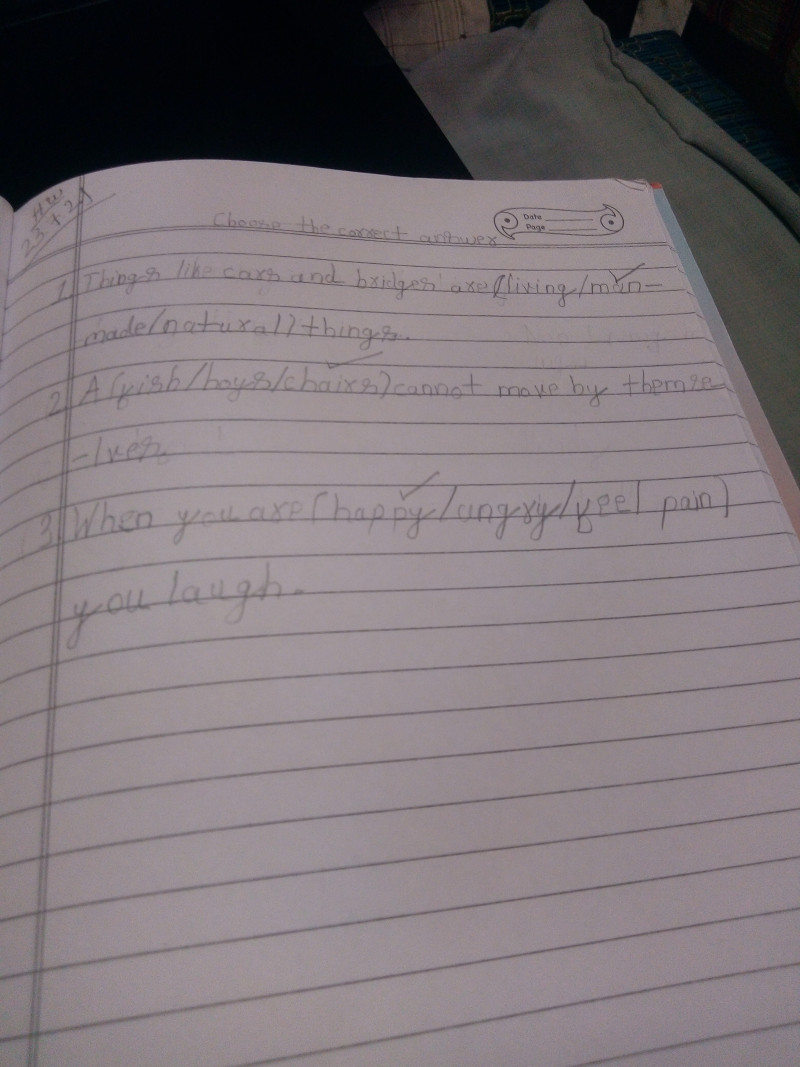 HW
Date
Page
Choose the correct answer
1. Things like cars and bridges are (living/man-
made/natural) things.
2. A (fish/boys/chairs) cannot move by themse
-lves.
3. When you are (happy/angry/feel pain)
you laugh.